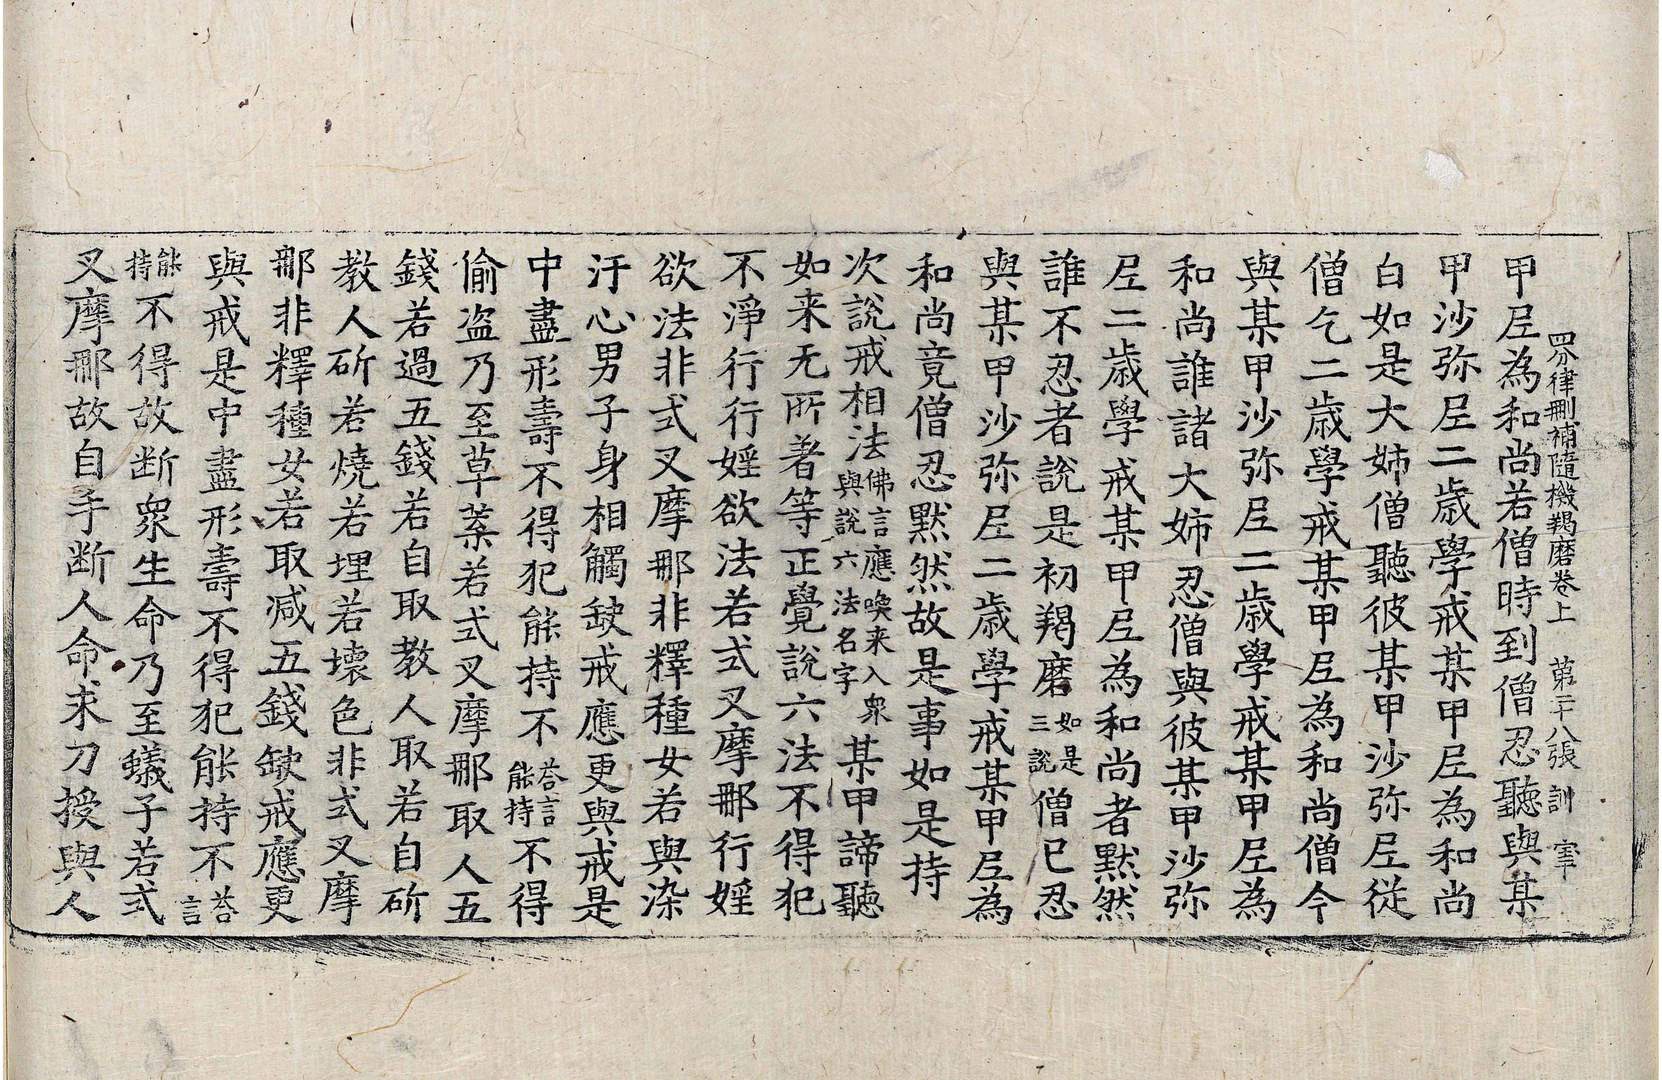 四分律刪補隨機羯磨卷上 第二十八張 訓 宰
甲尼為和尚若僧時到僧忍聽與某
甲沙弥尼二歲學戒某甲尼為和尚
白如是大姊僧聽彼某甲沙弥尼從
僧乞二歲學戒某甲尼為和尚僧今
與某甲沙弥尼二歲學戒某甲尼為
和尚誰諸大姊忍僧與彼某甲沙弥
尼二歲學戒某甲尼為和尚者默然
誰不忍者說是初羯磨如是三說僧已忍
與某甲沙弥尼二歲學戒某甲尼為
和尚竟僧忍默然故是事如是持
次說戒相法佛言應喚来入衆與說六法名字某甲諦聽
如来无所著等正覺說六法不得犯
不淨行行婬欲法若式叉摩那行婬
欲法非式叉摩那非釋種女若與染
汙心男子身相觸缺戒應更與戒是
中盡形壽不得犯能持不荅言能持不得
偷盜乃至草葉若式叉摩那取人五
錢若過五錢若自取教人取若自斫
教人斫若燒若埋若壞色非式叉摩
那非釋種女若取减五錢缺戒應更
與戒是中盡形壽不得犯能持不荅言
能持不得故断衆生命乃至蟻子若式
叉摩那故自手断人命求刀授與人